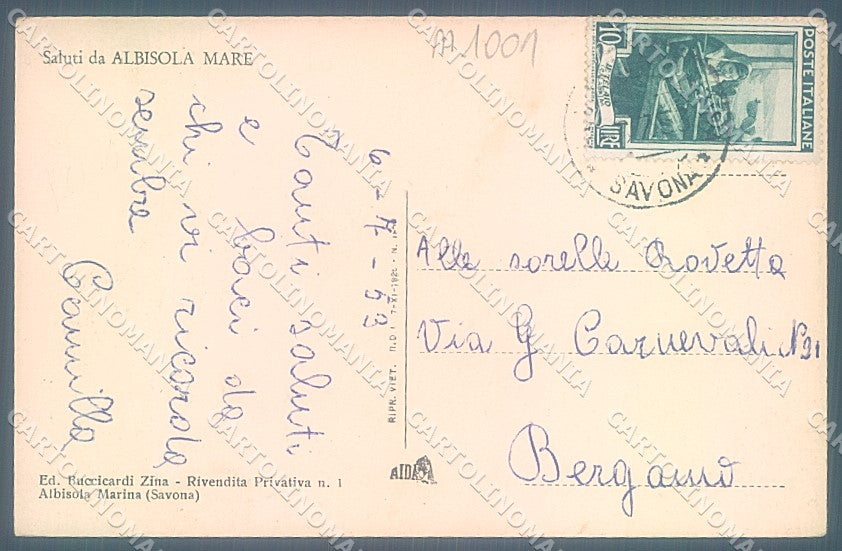 Saluti da ALBISOLA MARE
AA1001
POSTE ITALIANE
10
LIRE
* SAVONA *
6-7-53
Tanti saluti
e baci da
chi vi ricorda
sembre
Camilla
Alle sorelle Rovetta
Via G Carnevali N 21
Bergamo
RIPR. VIET. N.D.I 7-XI-1925 - N.
AIDA
Ed. Buccicardi Zina - Rivendita Privativa n. 1
Albisola Marina (Savona)
CARTOLINOMANIA